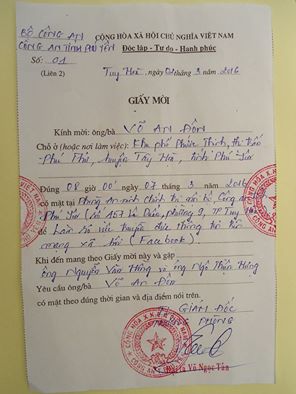 BỘ CÔNG AN
CỘNG HÒA XÃ HỘI CHỦ NGHĨA VIỆT NAM
CÔNG AN TỈNH PHÚ YÊN
Độc lập - Tự do - Hạnh phúc
Số: 01
(Liên 2)
Tuy Hoà, ngày 02 tháng 3 năm 2016
GIẤY MỜI
Kính mời: ông/bà VÕ AN ĐÔN
Chỗ ở (hoặc nơi làm việc): Khu phố Phước Thịnh, thị trấn
Phú Thứ, huyện Tây Hoà, tỉnh Phú Yên
Đúng 08 giờ 00' ngày 07 tháng 3 năm 2016
có mặt tại Phòng An ninh Chính trị nội bộ, Công an
Phú Yên (số 457 Lê Duẩn, phường 9, TP Tuy Hoà
để làm việc
mạng xã hội (Facebook)
Khi đến mang theo Giấy mời này và gặp
ông Nguyễn Văn Hồng và ông Ngô Thịnh Hùng
Yêu cầu ông/bà Võ An Đôn
có mặt theo đúng thời gian và địa điểm nói trên.
GIÁM ĐỐC
PHÒNG
Võ Ngọc Tân